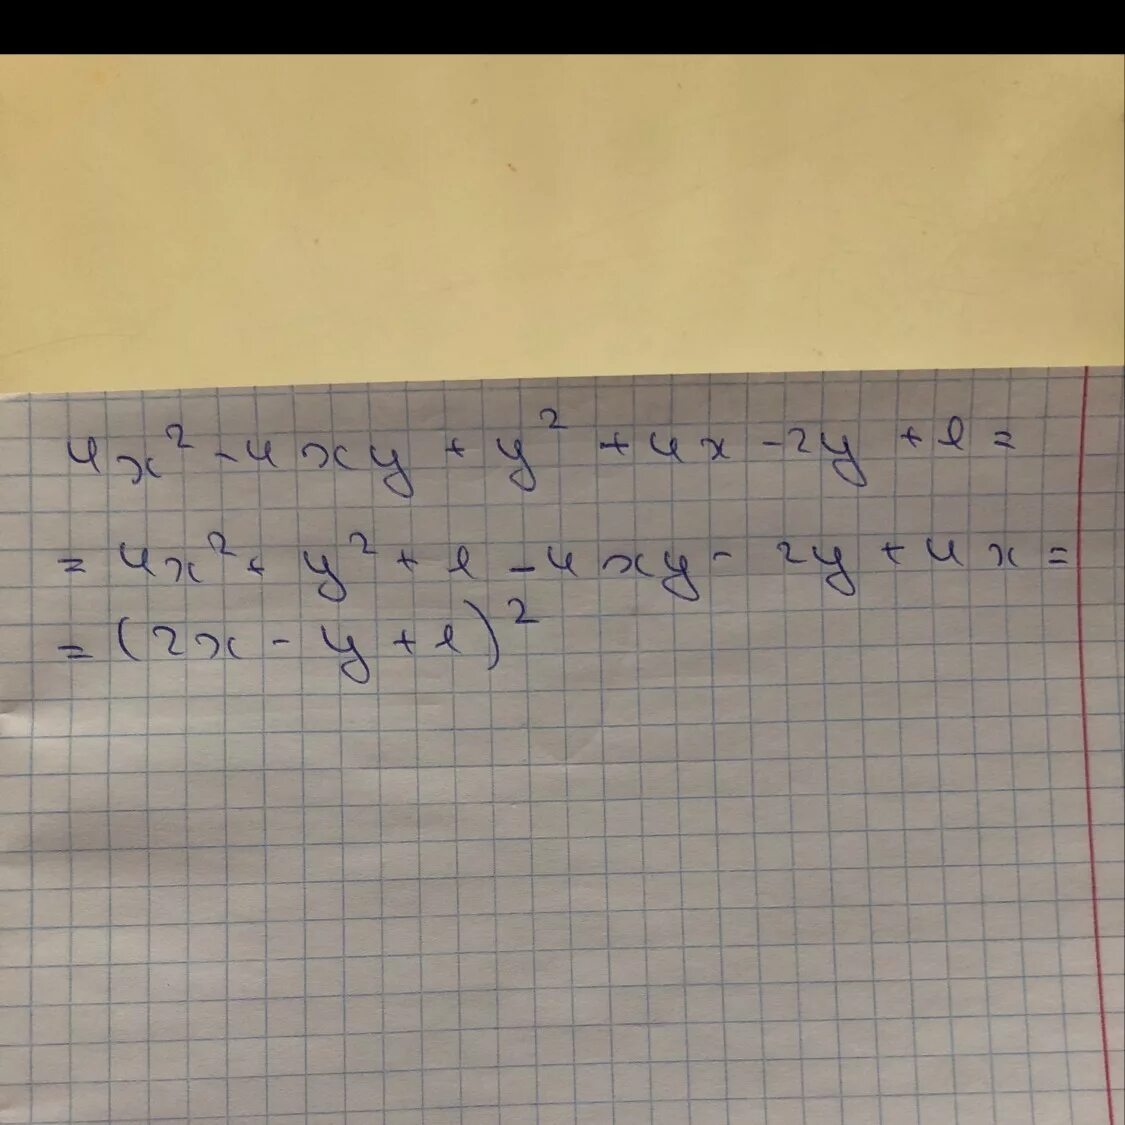 4x² - 4xy + y² + 4x - 2y + 1 =
= 4x² + y² + 1 - 4xy - 2y + 4x =
= (2x - y + 1)²